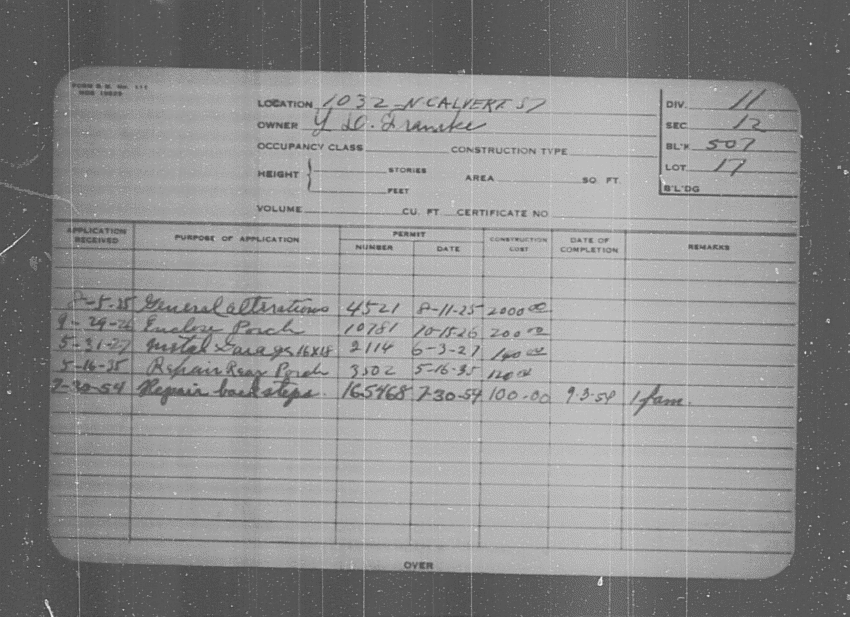 FORM B. M. No. 111
LOCATION 1032 N CALVERT ST
OWNER Y D. Franske
OCCUPANCY CLASS CONSTRUCTION TYPE
HEIGHT STORIES FEET AREA SQ. FT.
VOLUME CU. FT. CERTIFICATE NO
DIV. 11
SEC. 12
BL'K 507
LOT 17
B'L'DG
APPLICATION RECEIVED PURPOSE OF APPLICATION PERMIT NUMBER DATE CONSTRUCTION COST DATE OF COMPLETION REMARKS
8-5-25 General alterations 4521 8-11-25 2000 00
9-29-26 Enclose Porch 10781 10-15-26 200 00
5-31-27 Metal Garage 16X18 2114 6-3-27 140 00
5-16-35 Repair Rear Porch 3502 5-16-35 120 00
7-30-54 Repair back steps. 165468 7-30-54 100.00 9-3-54 1 fam.
OVER